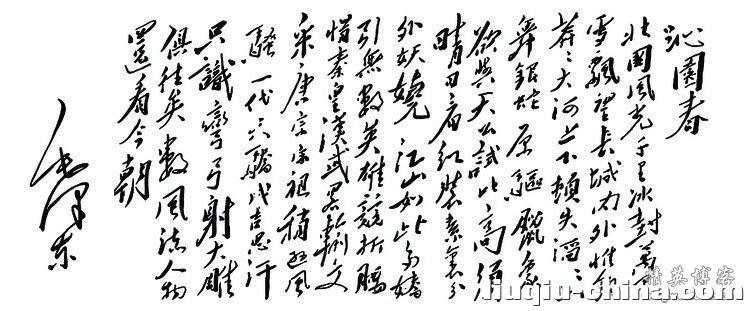 沁園春
北國風光千里冰封萬里
雪飄望長城内外惟餘
莽々大河上下頓失滔々山
舞銀蛇原驅臘象
欲與天公試比高須
晴日看紅裝素裹分
外妖嬈江山如此多嬌
引無數英雄競折腰
惜秦皇漢武畧輸文
采唐宗宋祖稍遜風
騷一代天驕成吉思汗
只識彎弓射大雕
俱往矣數風流人物
還看今朝
毛澤東
精英博客
liuqiu-china.com